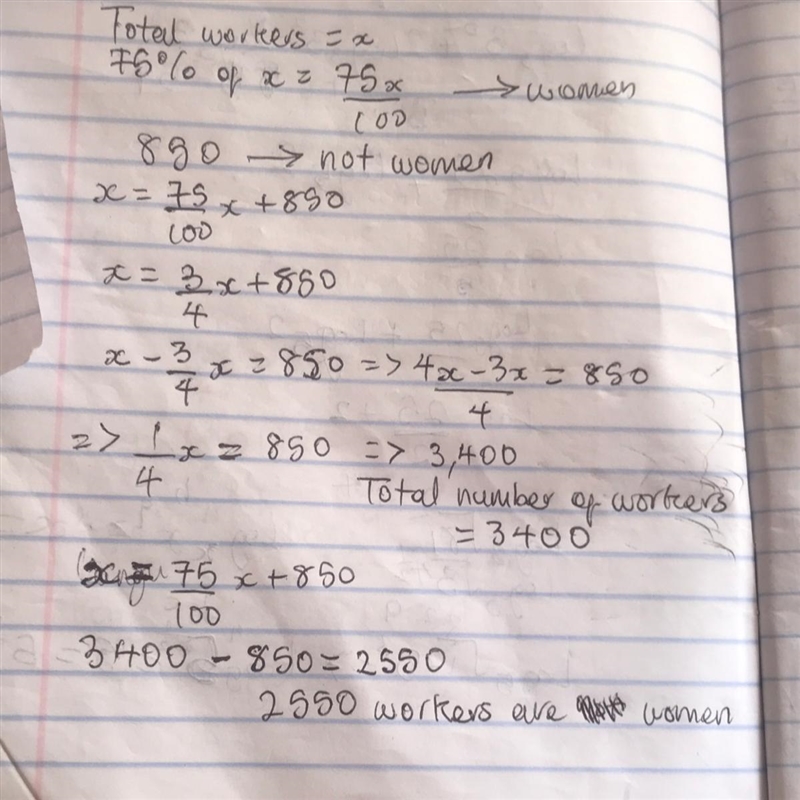 Total workers = x
75% of x = 75x/100 → women
850 → not women
x = 75/100 x + 850
x = 3/4 x + 850
x - 3/4 x = 850 => 4x - 3x/4 = 850
=> 1/4 x = 850 => 3,400
Total number of workers
= 3400
75/100 x + 850
3400 - 850 = 2550
2550 workers are women